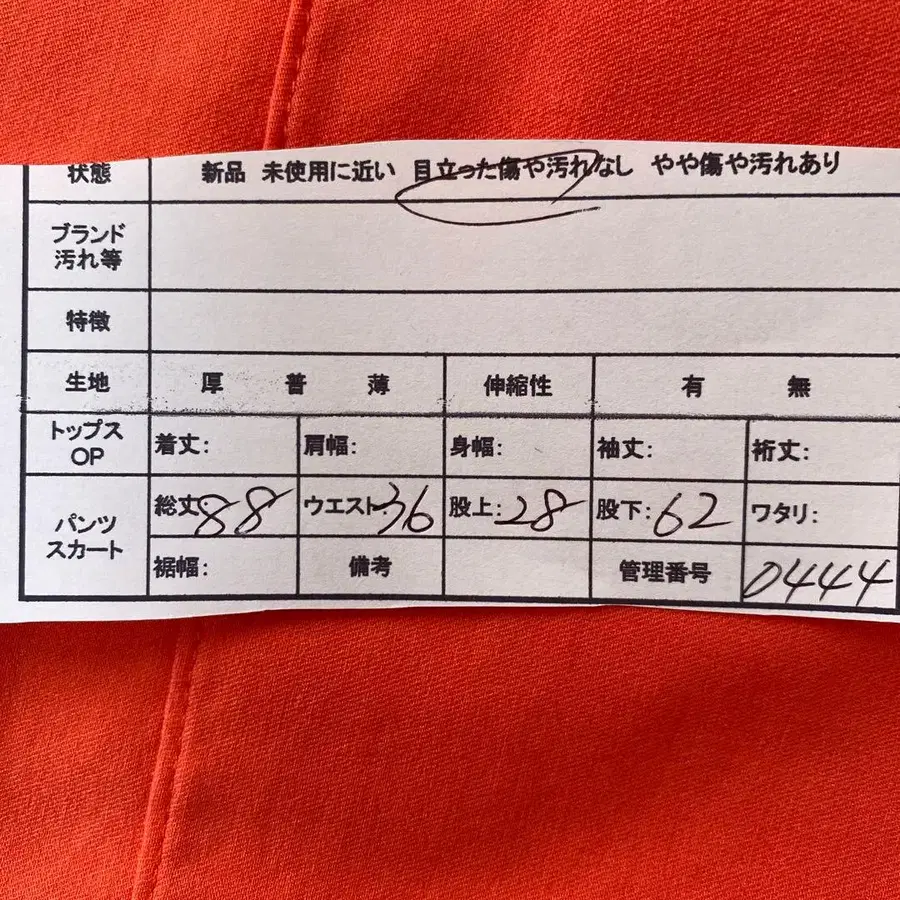 状態 新品 未使用に近い 目立った傷や汚れなし やや傷や汚れあり
ブランド
汚れ等
特徴
生地 厚 普 薄 伸縮性 有 無
トップス
OP
着丈: 肩幅: 身幅: 袖丈: 裄丈:
パンツ
スカート
総丈88 ウエスト36 股上:28 股下:62 ワタリ:
裾幅: 備考 管理番号 0444